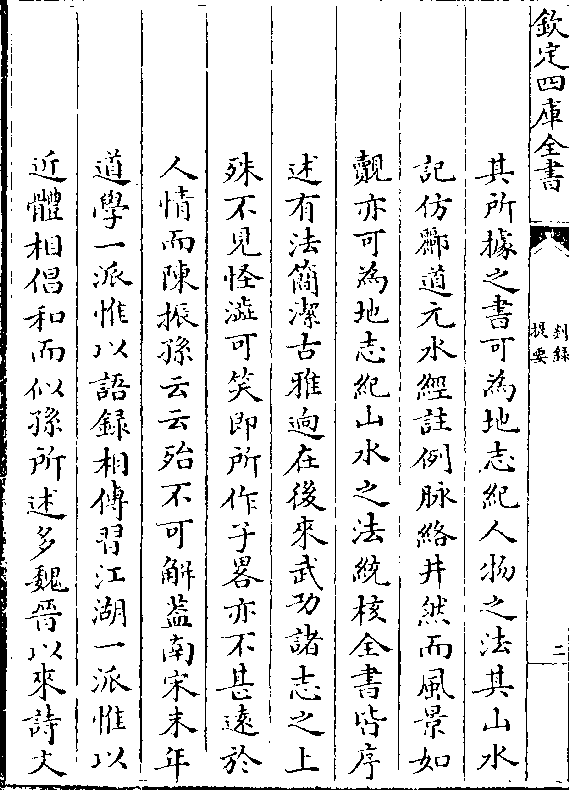 欽定四庫全書
剡錄
提要
二
其所據之書可為地志紀人物之法其山水
記仿酈道元水經註例脉絡井然而風景如
覿亦可為地志紀山水之法統核全書皆序
述有法簡潔古雅逈在後來武功諸志之上
殊不見怪澁可笑即所作子畧亦不甚遠於
人情而陳振孫云云殆不可解葢南宋末年
道學一派惟以語録相傳習江湖一派惟以
近體相倡和而似孫所述多魏晉以來詩文